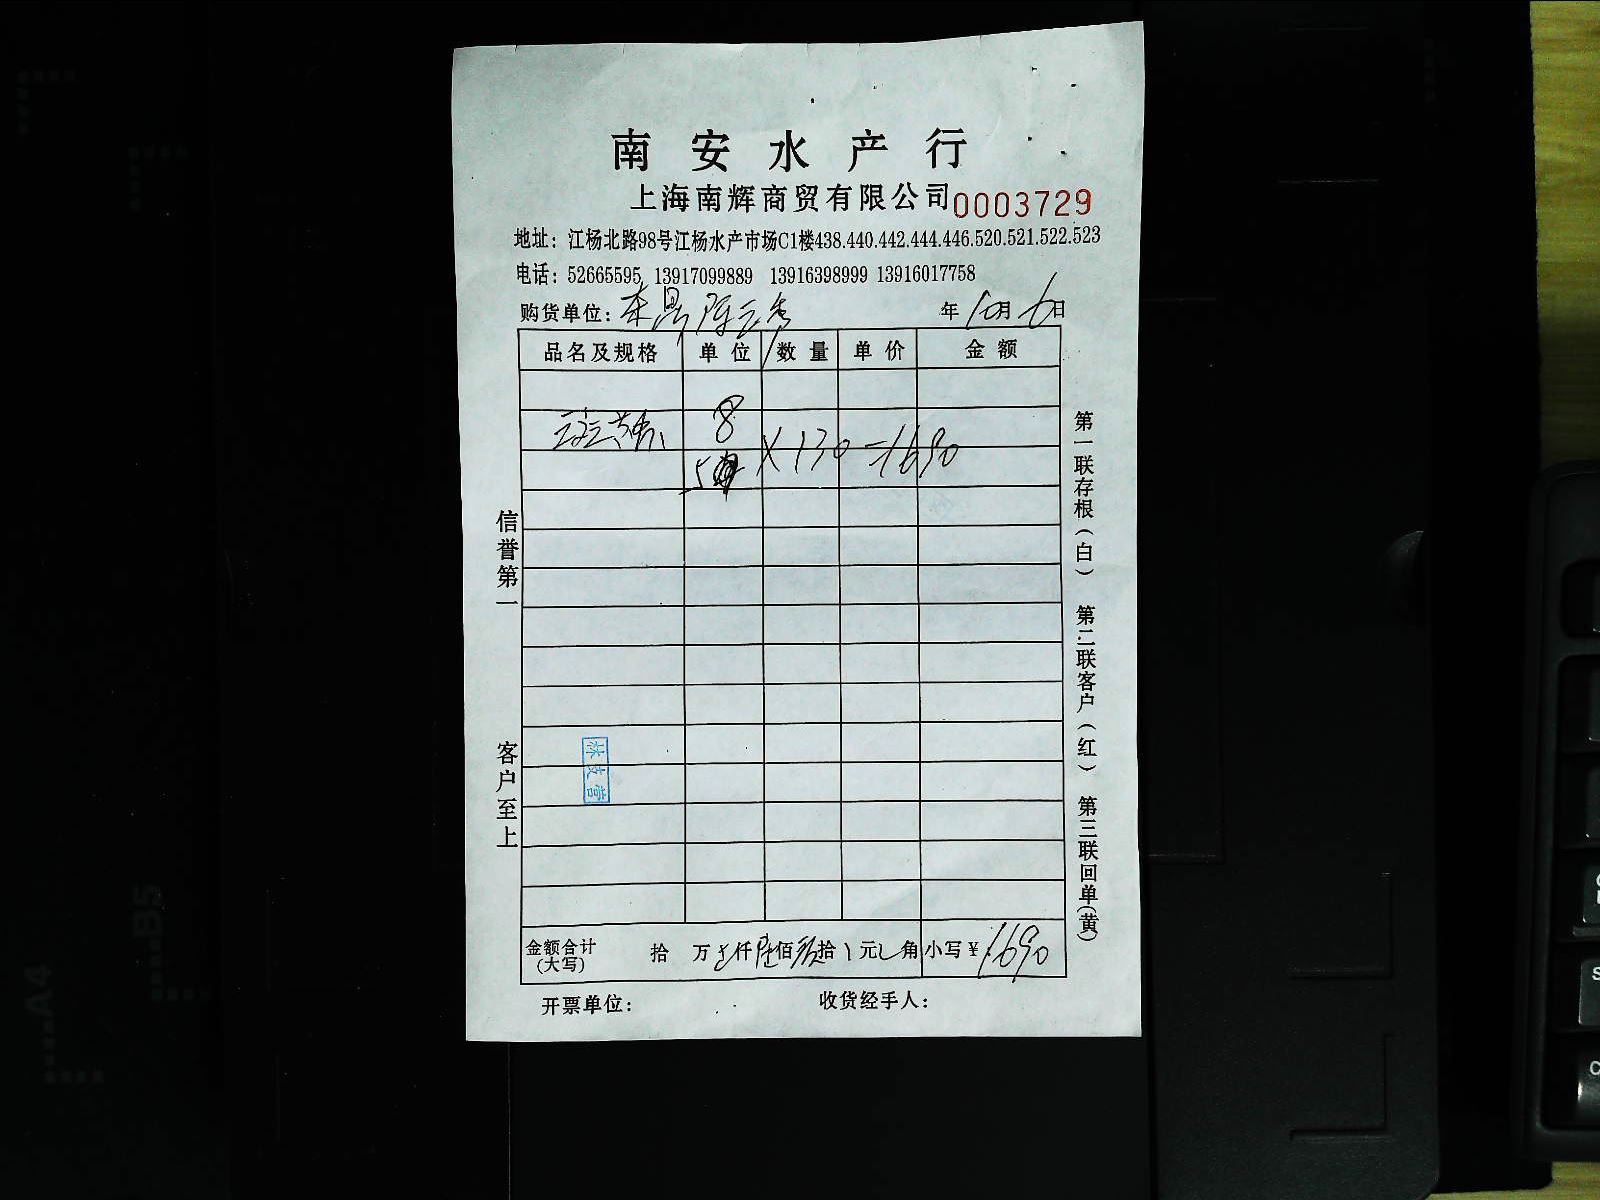 南安水产行
上海南辉商贸有限公司 0003729
地址：江杨北路98号江杨水产市场C1楼438.440.442.444.446.520.521.522.523
电话：52665595 13917099889 13916398999 13916017758
购货单位： 年10月6日
品名及规格 单位 数量 单价 金额
8
5 X130=1690
信誉第一
客户至上
第一联存根（白） 第二联客户（红） 第三联回单(黄)
金额合计(大写) 拾 万 仟陆佰 拾 元 角 小写￥1690
开票单位： 收货经手人：